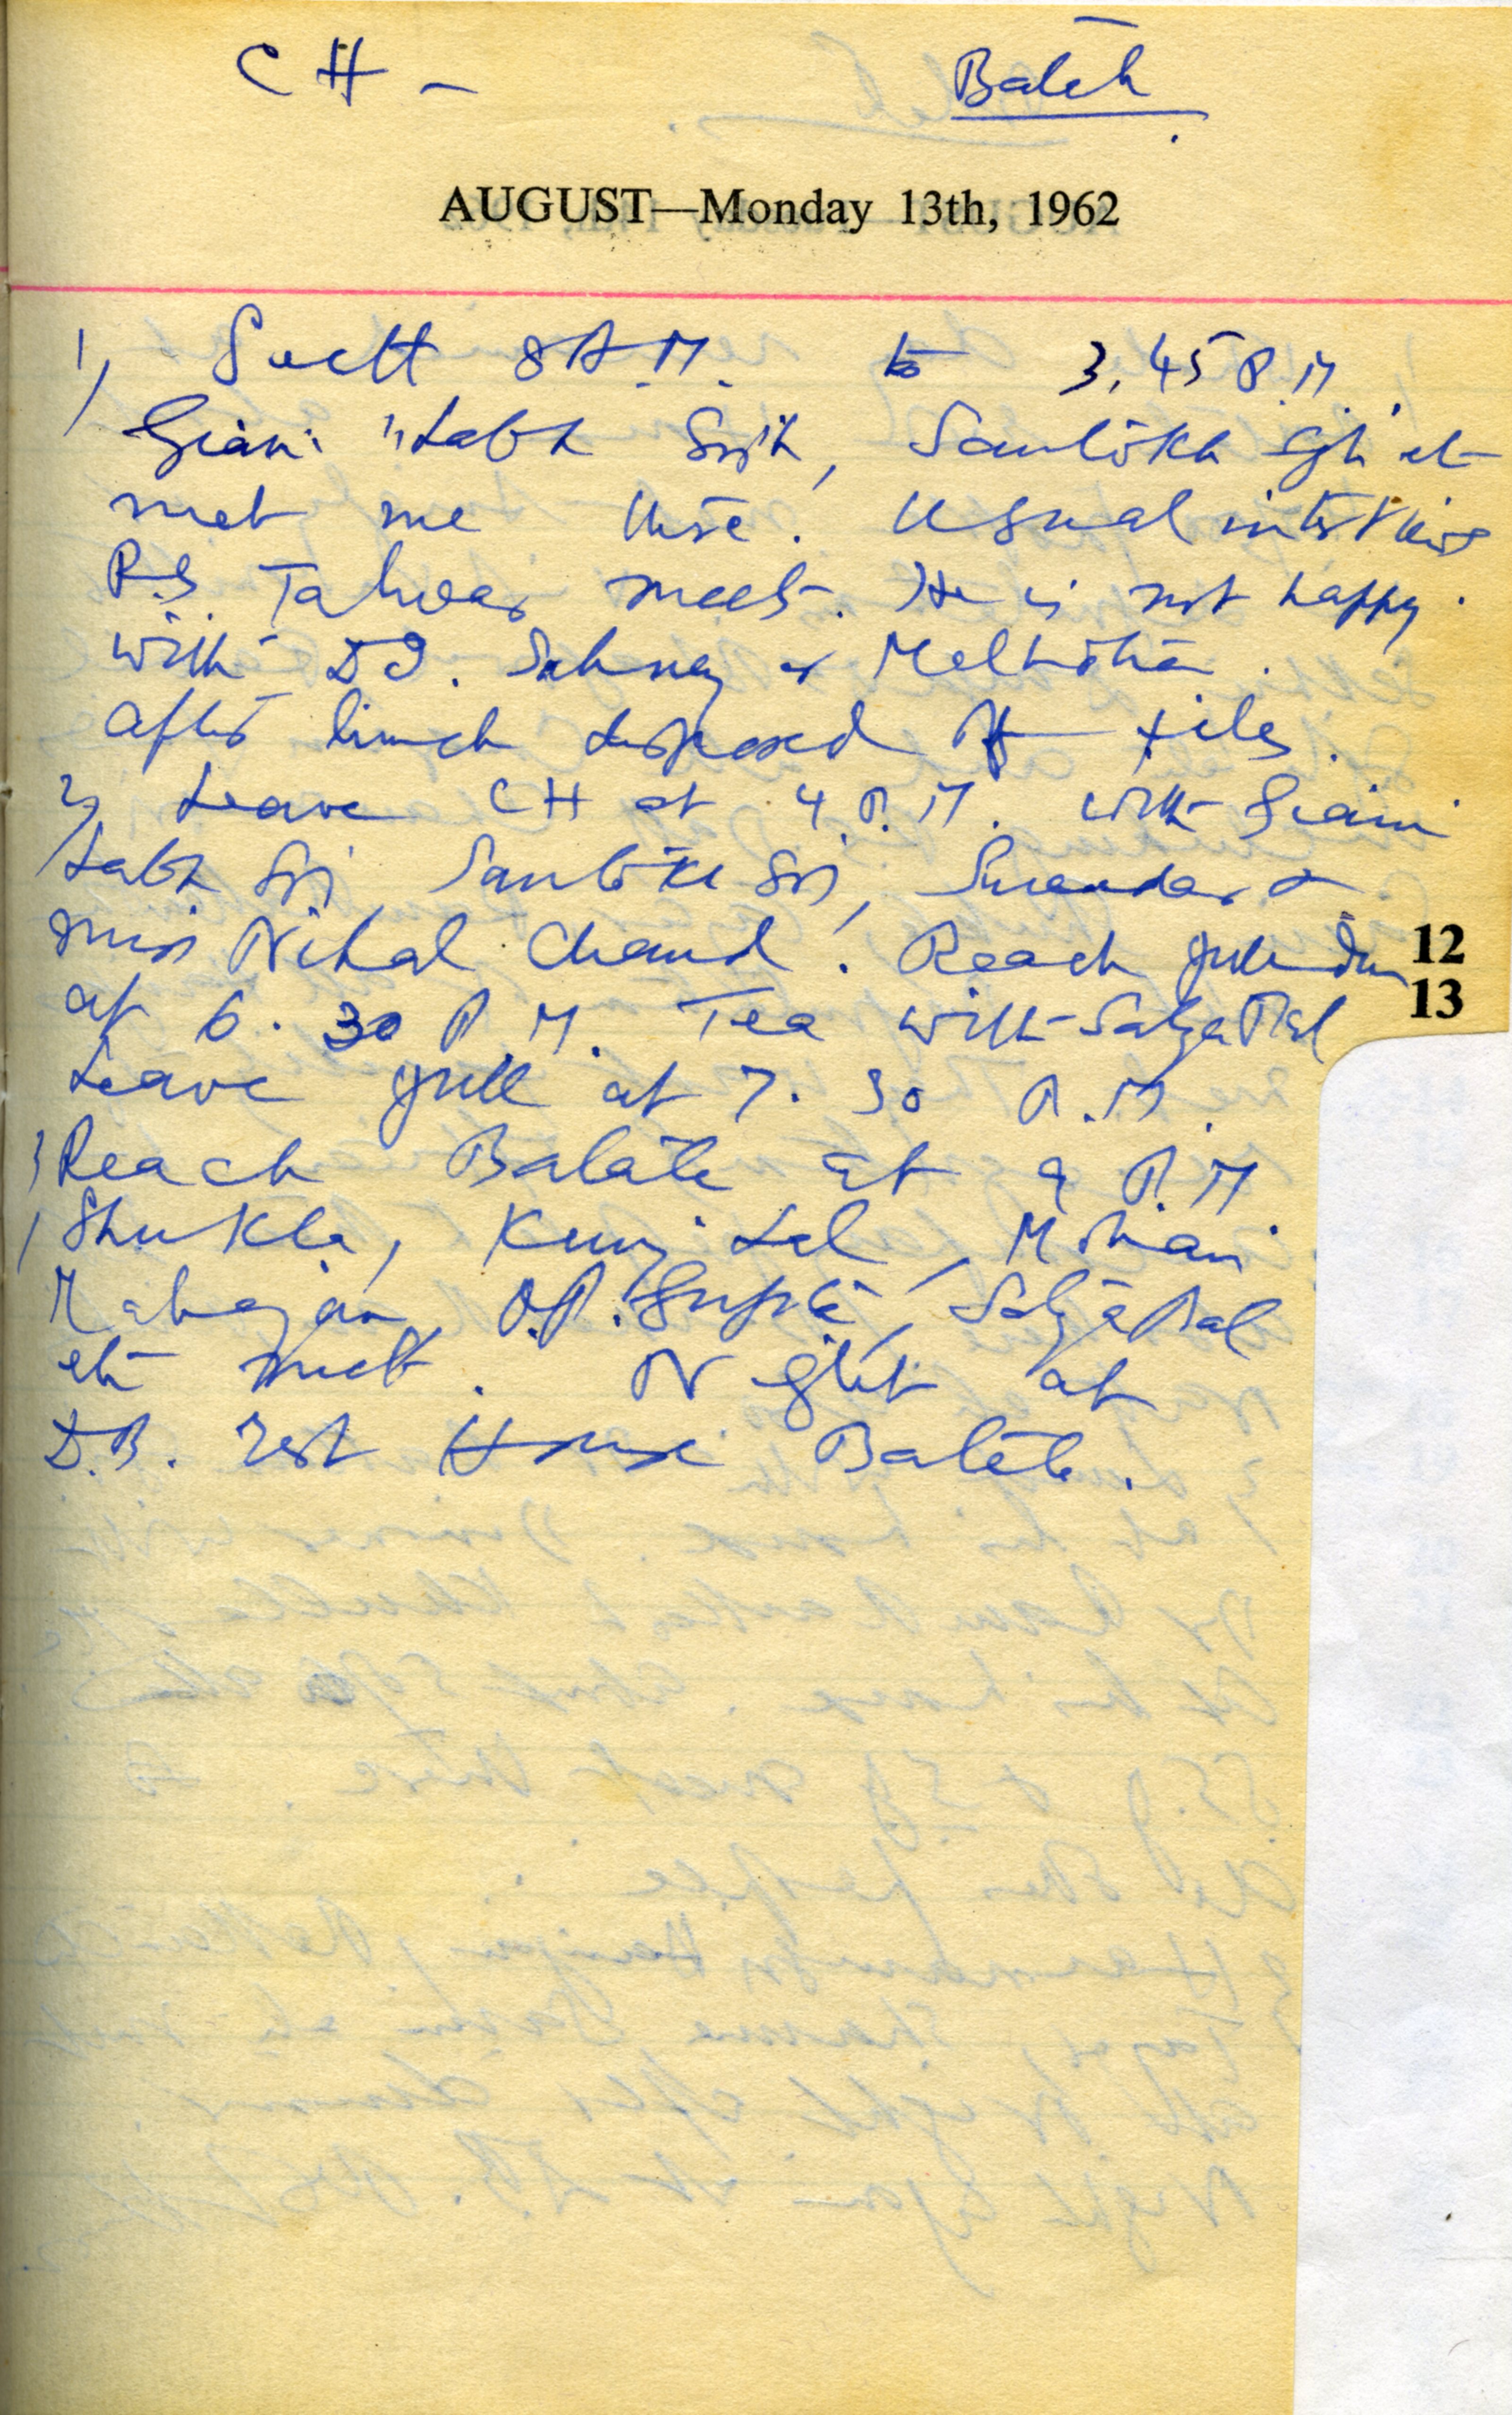 CH — Batch
AUGUST—Monday 13th, 1962
1) Sectt 8 A.M. to 3.45 P.M.
Giani Labh Sgh, Santokh Sgh etc
met me there. Usual interviews
R.S. Talwar meets. He is not happy.
with Sahney & Malhotra.
After lunch disposed off files.
2) Leave CH at 4 P.M. with Giani
Labh Sgh, Santokh Sgh, &
Miss Nihal Chand. Reach
at 6.30 P.M. Tea with Satya Pal
Leave Jull at 7.30 P.M.
3) Reach Batala at 9 P.M
Shukla, Kunj Lal, Mohan
Mahajan, O.P. Gupta, Satya Pal
etc met. Night at
D.B. rest House Batala.
12
13